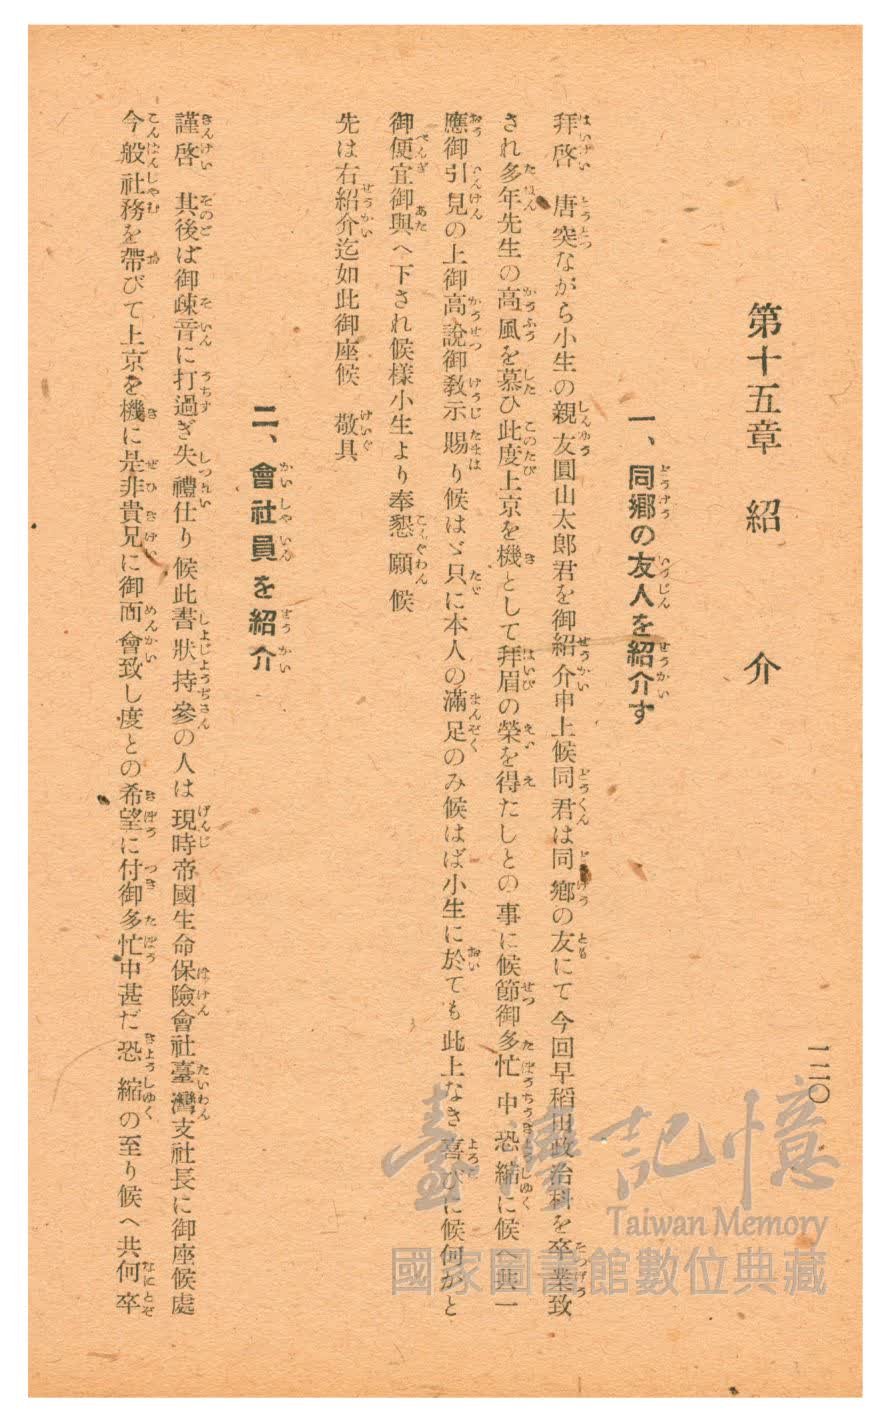 一二〇
第十五章　紹　介
一、同鄕の友人を紹介す
拜啓　唐突ながら小生の親友圓山太郎君を御紹介申上候同君は同鄕の友にて今回早稻田政治科を卒業致
され多年先生の高風を慕ひ此度上京を機として拜眉の榮を得たしとの事に候節御多忙中恐縮に候へ共一
應御引見の上御高說御敎示賜り候はゞ只に本人の滿足のみ候はば小生に於ても此上なき喜びに候何かと
御便宜御與へ下され候樣小生より奉懇願候
先は右紹介迄如此御座候　敬具
二、會社員を紹介
謹啓　其後は御疎音に打過ぎ失禮仕り候此書狀持參の人は現時帝國生命保險會社臺灣支社長に御座候處
今般社務を帶びて上京を機に是非貴兄に御面會致し度との希望に付御多忙中甚だ恐縮の至り候へ共何卒
臺灣記憶
Taiwan Memory
國家圖書館數位典藏